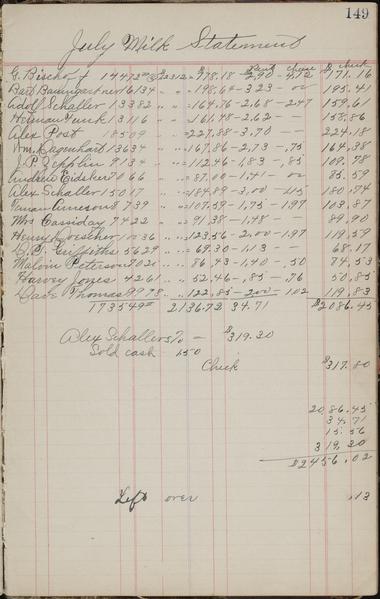 149
July Milk Statement
Paid cheese check
G. Bischof 14472 @ $178.18 2.90 - 4.12 $171.16
Bart Baumgartner 16134 " " 198.64 - 3.23 - 195.41
Adolf Schaller 13382 " " 164.76 - 2.68 - 2.47 159.61
Herman Funk 13116 " " 161.48 - 2.62 - 158.86
Alex Post 18509 " " 227.88 - 3.70 - 224.18
Wm. Kagenhart 13634 " " 167.86 - 2.73 - .75 164.38
J. P. Zepplin 9134 " " 112.46 - 1.83 - .85 109.78
Andrew Eidsher 7066 " " 87.00 - 1.41 - 85.59
Alex Schaller 15017 " " 184.89 - 3.00 - 1.15 180.74
Truman Amerson 8739 " " 107.59 - 1.75 - 1.97 103.87
Mrs Cassiday 7422 " " 91.38 - 1.48 - 89.90
Henry 10036 " " 123.56 - 2.00 - 1.97 119.59
Griffiths 5629 " " 69.30 - 1.13 - 68.17
Malvin Peterson 7020 " " 86.43 - 1.40 - .50 74.53
Harvey Jones 4261 " " 52.46 - .85 - .76 50.85
Thomas 9978 " " 122.85 - 2.00 - 1.02 119.83
173549 2136.72 34.71 $2086.45
Alex Schaller 5% - $319.30
Sold cash 1.50
Check $317.80
2086.45
34.71
15.56
319.30
$2456.02
Left over .13